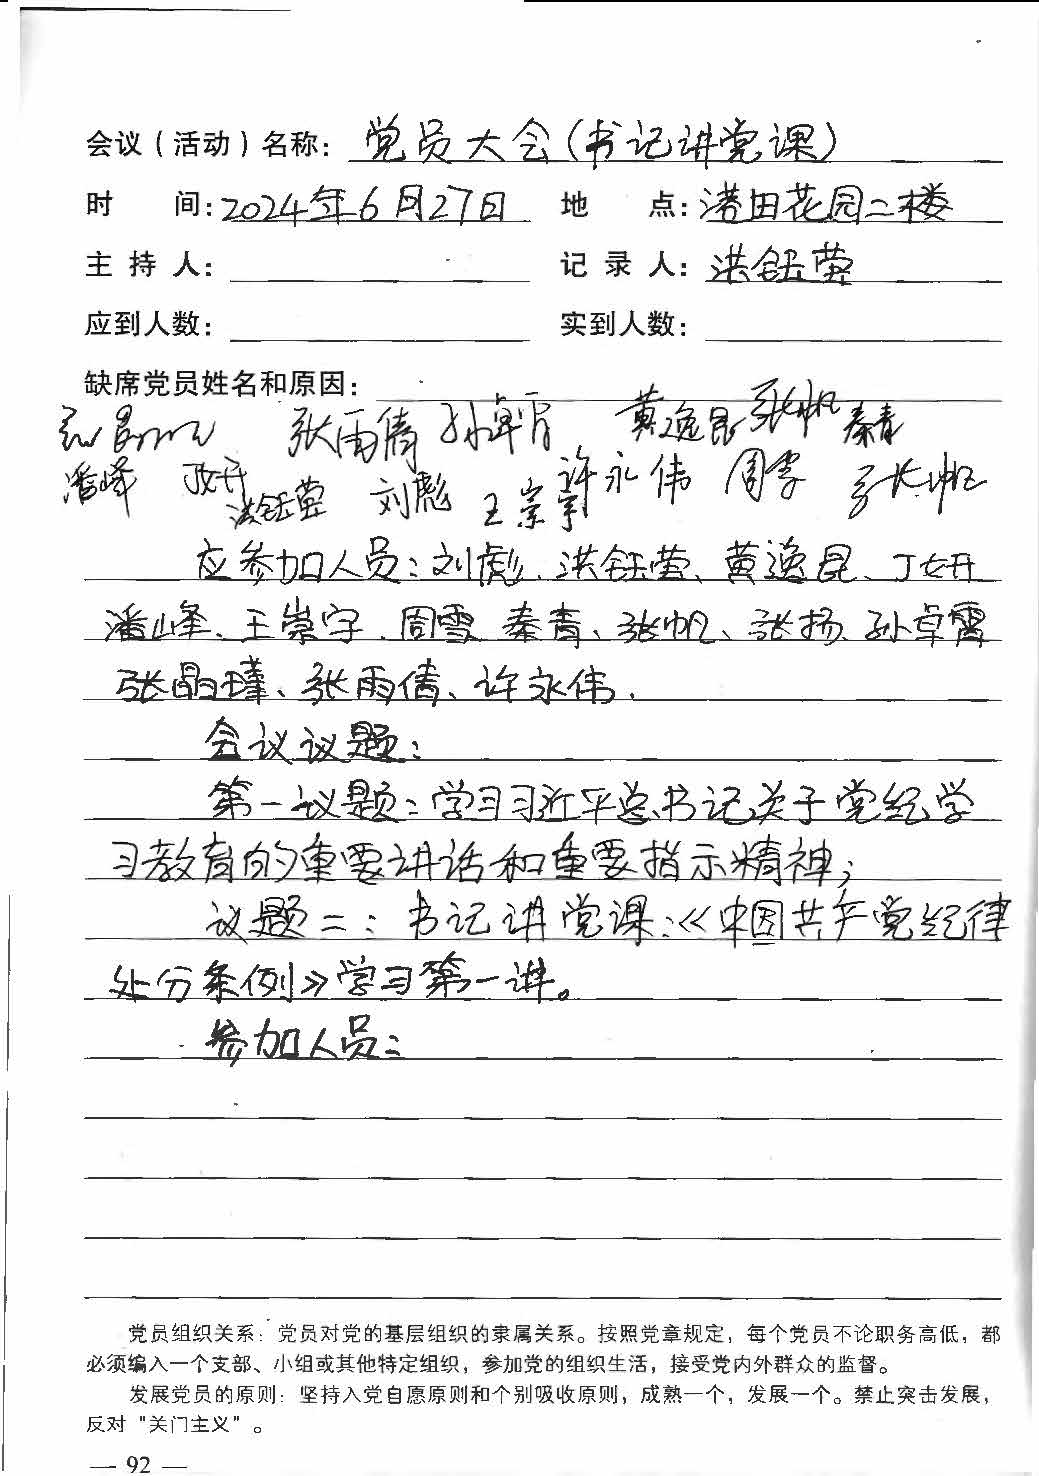 会议（活动）名称：党员大会（书记讲党课）
时 间：2024年6月27日 地 点：港田花园二楼
主 持 人： 记 录 人：洪钰莹
应到人数： 实到人数：
缺席党员姓名和原因：
张雨倩 孙卓霄 黄逸昆 张帆 秦青
潘峰 丁妍 洪钰莹 刘彪 王崇宇 许永伟 周雪 张帆
应参加人员：刘彪、洪钰莹、黄逸昆、丁妍
潘峰、王崇宇、周雪、秦青、张帆、张扬、孙卓霄
张晶瑾、张雨倩、许永伟.
会议议题：
第一议题：学习习近平总书记关于党纪学
习教育的重要讲话和重要指示精神；
议题二：书记讲党课：《中国共产党纪律
处分条例》学习第一讲。
参加人员：
党员组织关系：党员对党的基层组织的隶属关系。按照党章规定，每个党员不论职务高低，都
必须编入一个支部、小组或其他特定组织，参加党的组织生活，接受党内外群众的监督。
发展党员的原则：坚持入党自愿原则和个别吸收原则，成熟一个，发展一个。禁止突击发展，
反对“关门主义”。
— 92 —